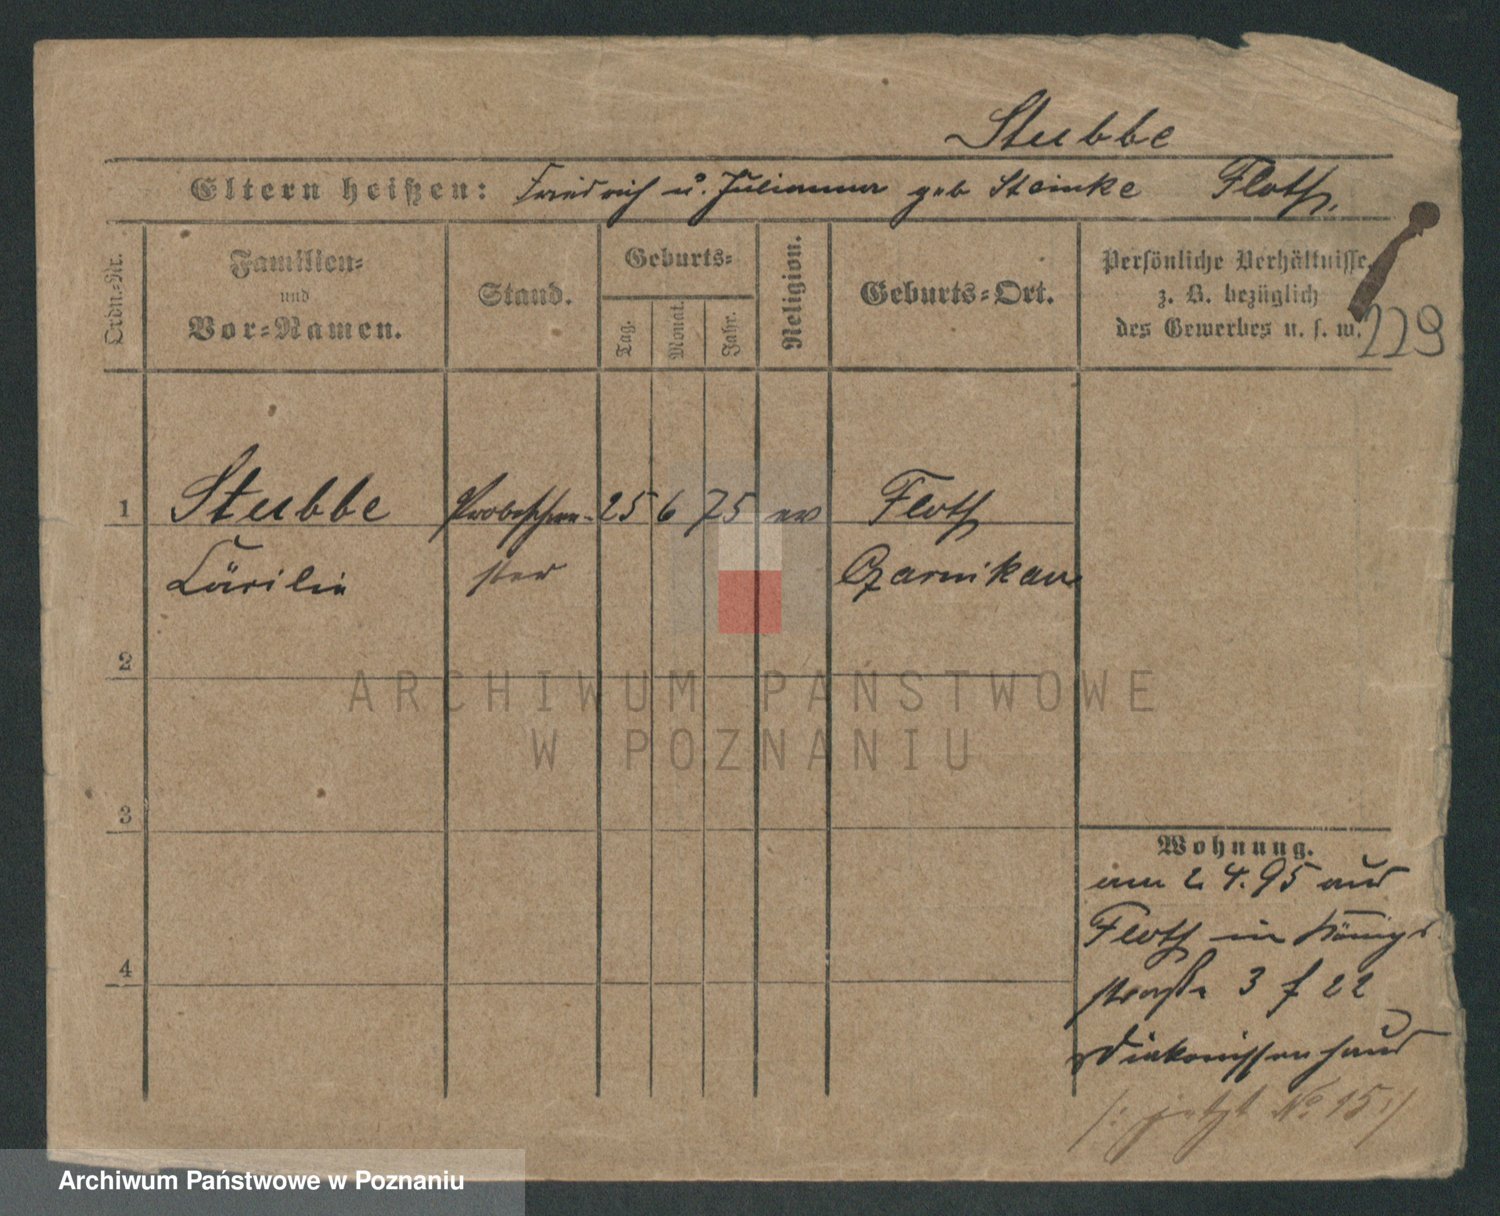 Stubbe
Eltern heißen: Friedrich u. Julianna geb Steinke Floth,
Ordn.-Nr.
Familien-
und
Vor-Namen.
Stand.
Geburts-
Tag.
Monat.
Jahr.
Religion.
Geburts-Ort.
Persönliche Verhältnisse,
z. B. bezüglich
des Gewerbes u. s. w.
229
1 Stubbe Probeschwe- 25 6 75 ev Floth
ster Czarnikau
2
3
4
Wohnung.
am 2 4. 95 aus
Floth in Königs
straße 3 f 22
Diakonissenhaus
/: jetzt No 15 :/
ARCHIWUM PAŃSTWOWE
W POZNANIU
Archiwum Państwowe w Poznaniu